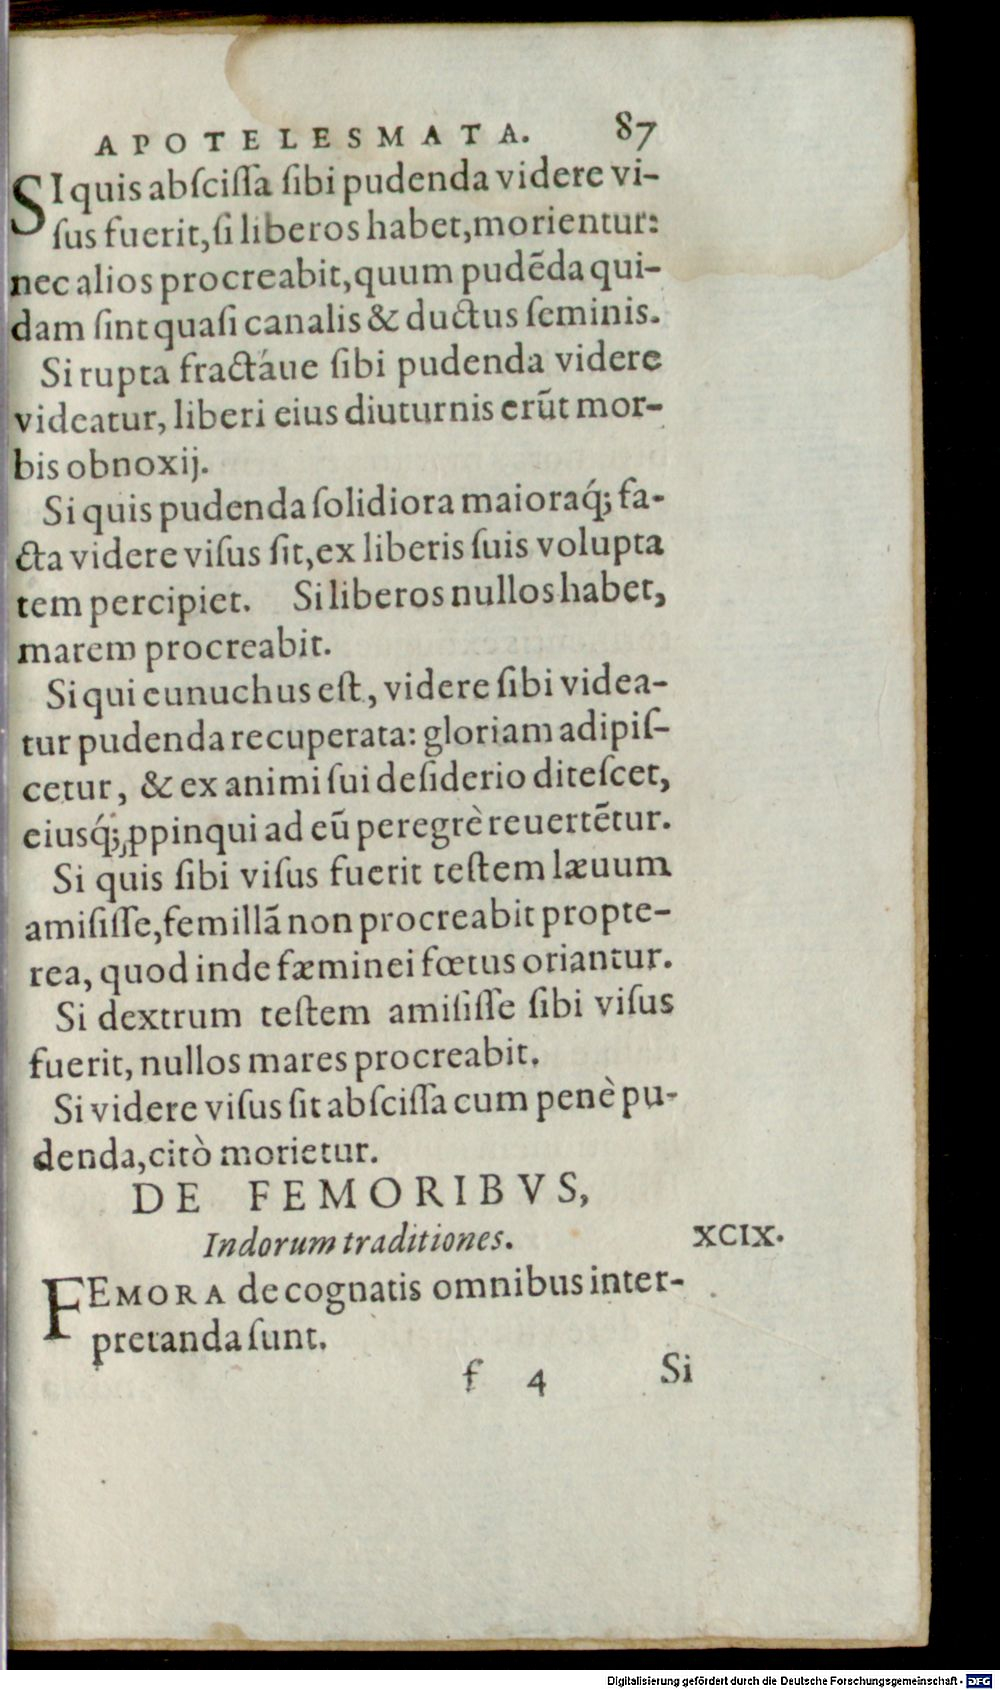 APOTELESMATA. 87
SI quis abſciſſa ſibi pudenda videre vi-
ſus fuerit, ſi liberos habet, morientur:
nec alios procreabit, quum pudēda qui-
dam ſint quaſi canalis & ductus ſeminis.
Si rupta fractáue ſibi pudenda videre
videatur, liberi eius diuturnis erūt mor-
bis obnoxij.
Si quis pudenda ſolidiora maioraq́; fa-
cta videre viſus ſit, ex liberis ſuis volupta
tem percipiet. Si liberos nullos habet,
marem procreabit.
Si qui eunuchus eſt, videre ſibi videa-
tur pudenda recuperata: gloriam adipiſ-
cetur, & ex animi ſui deſiderio diteſcet,
eiusq́; ꝓpinqui ad eū peregrè reuertētur.
Si quis ſibi viſus fuerit teſtem læuum
amiſiſſe, femillā non procreabit propte-
rea, quod inde fæminei fœtus oriantur.
Si dextrum teſtem amiſiſſe ſibi viſus
fuerit, nullos mares procreabit.
Si videre viſus ſit abſciſſa cum penè pu-
denda, citò morietur.
DE FEMORIBVS,
Indorum traditiones. XCIX.
FEMORA de cognatis omnibus inter-
pretanda ſunt.
f 4 Si
Digitalisierung gefördert durch die Deutsche Forschungsgemeinschaft - DFG